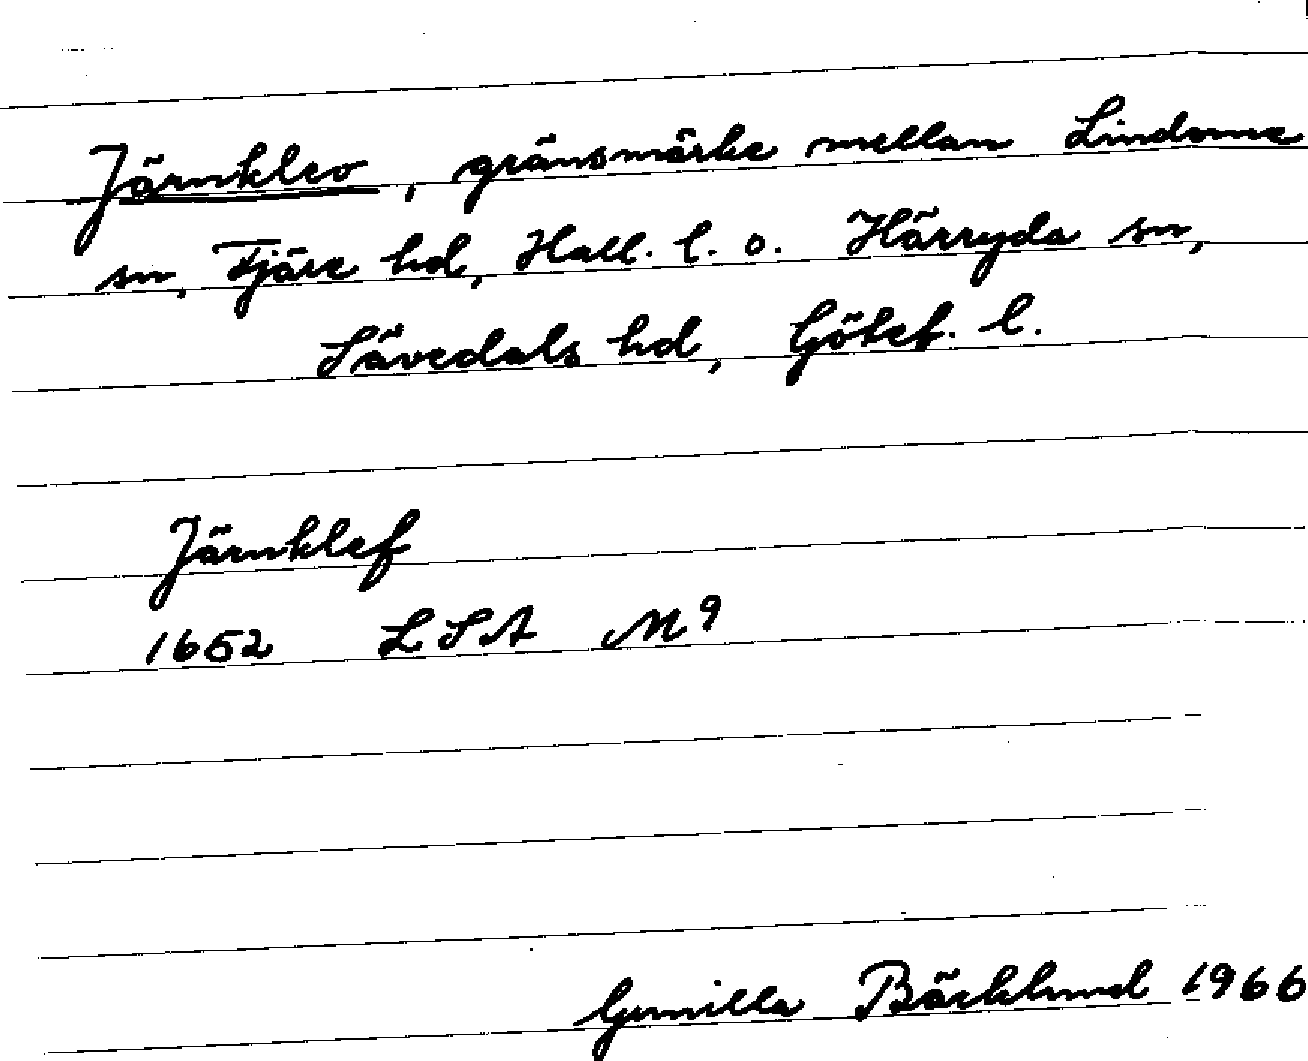 Järnklev, gränsmärke mellan Lindome
sn, Fjäre hd, Hall. l. o. Härryda sn,
Sävedals hd, Göteb. l.
Järnklef
1652 LSA M9
Gunilla Bäcklund 1966